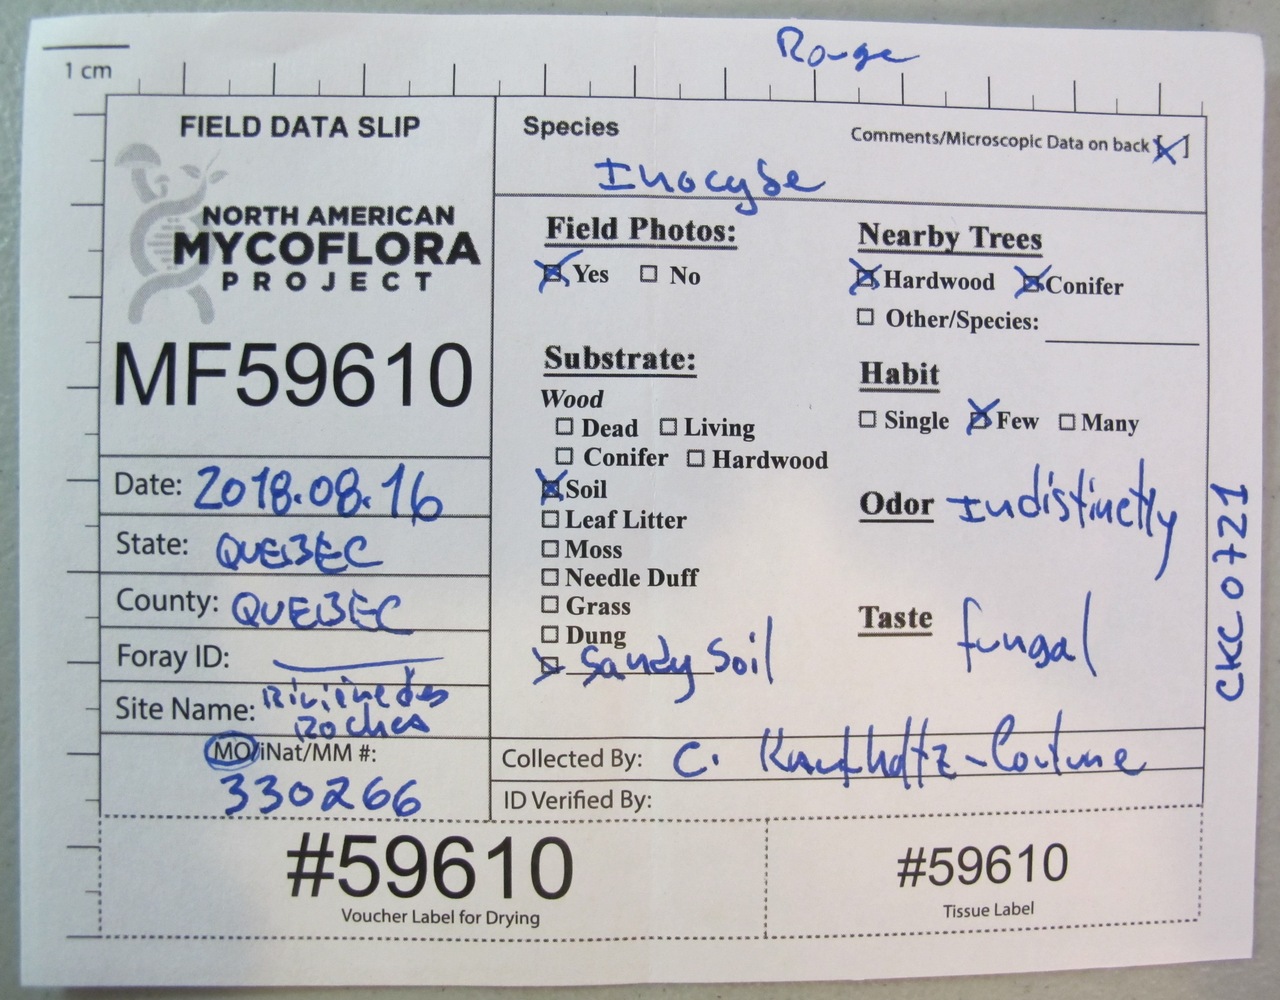 Rouge
1 cm
FIELD DATA SLIP
NORTH AMERICAN
MYCOFLORA
PROJECT
MF59610
Date: 2018.08.16
State: QUEBEC
County: QUEBEC
Foray ID:
Site Name: Rivière des
Roches
MO/iNat/MM #:
330266
Species
Comments/Microscopic Data on back [X]
Inocybe
Field Photos:
Yes No
Substrate:
Wood
Dead Living
Conifer Hardwood
Soil
Leaf Litter
Moss
Needle Duff
Grass
Dung
Sandy Soil
Nearby Trees
Hardwood Conifer
Other/Species:
Habit
Single Few Many
Odor Indistinctly
Taste fungal
Collected By: C. Kaufholtz-Couture
ID Verified By:
CKC0721
#59610
Voucher Label for Drying
#59610
Tissue Label